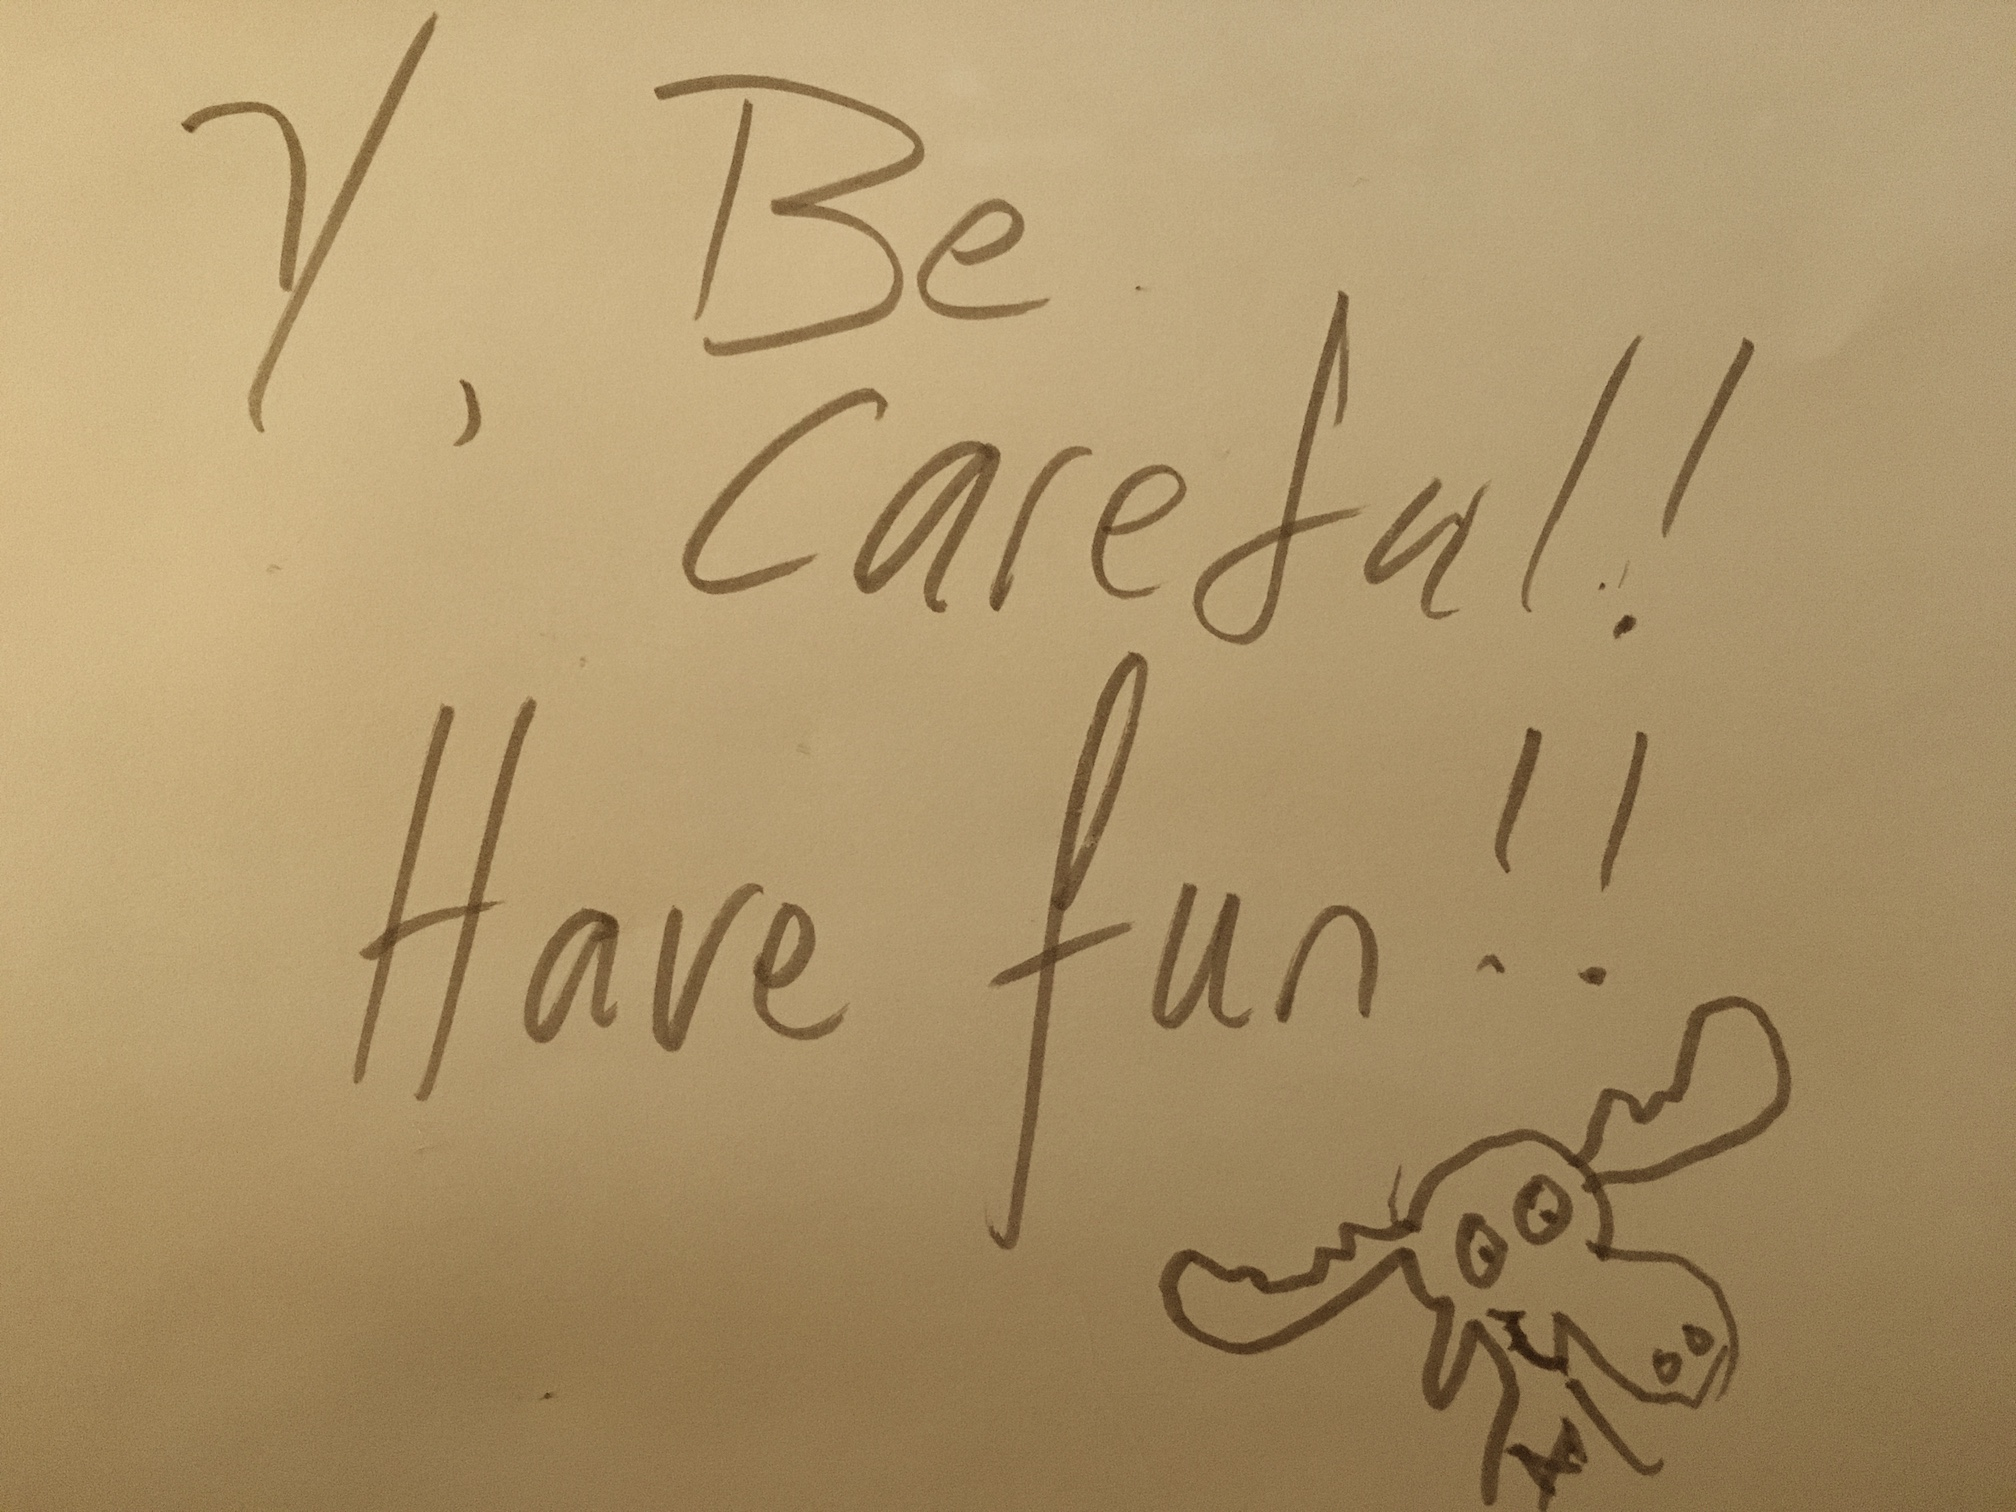 Y, Be
Careful!!
Have fun!!